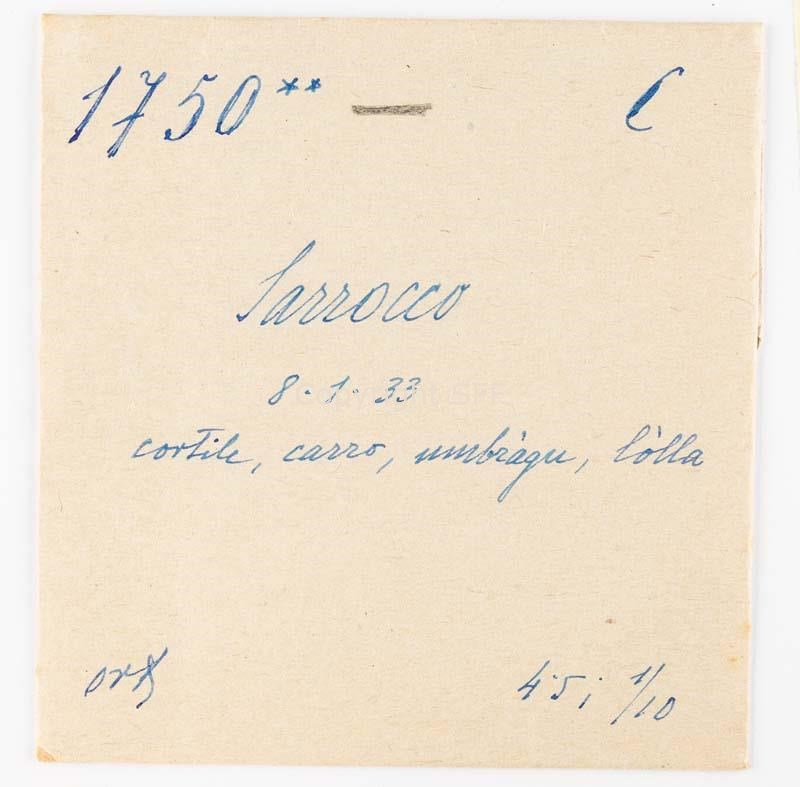 1750** — C
Sarrocco
8.1.33
cortile, carro, umbràgu, lòlla
4.5; 1/10